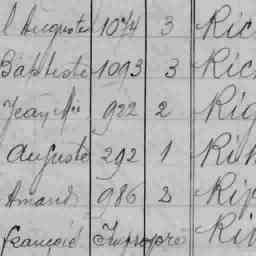 l Auguste 1074 3 Ric
Baptiste 1093 3 Ric
Jean Mie 922 2 Rig
Auguste 292 1 Rih
Amand 986 2 Rip
François Impropre Riv